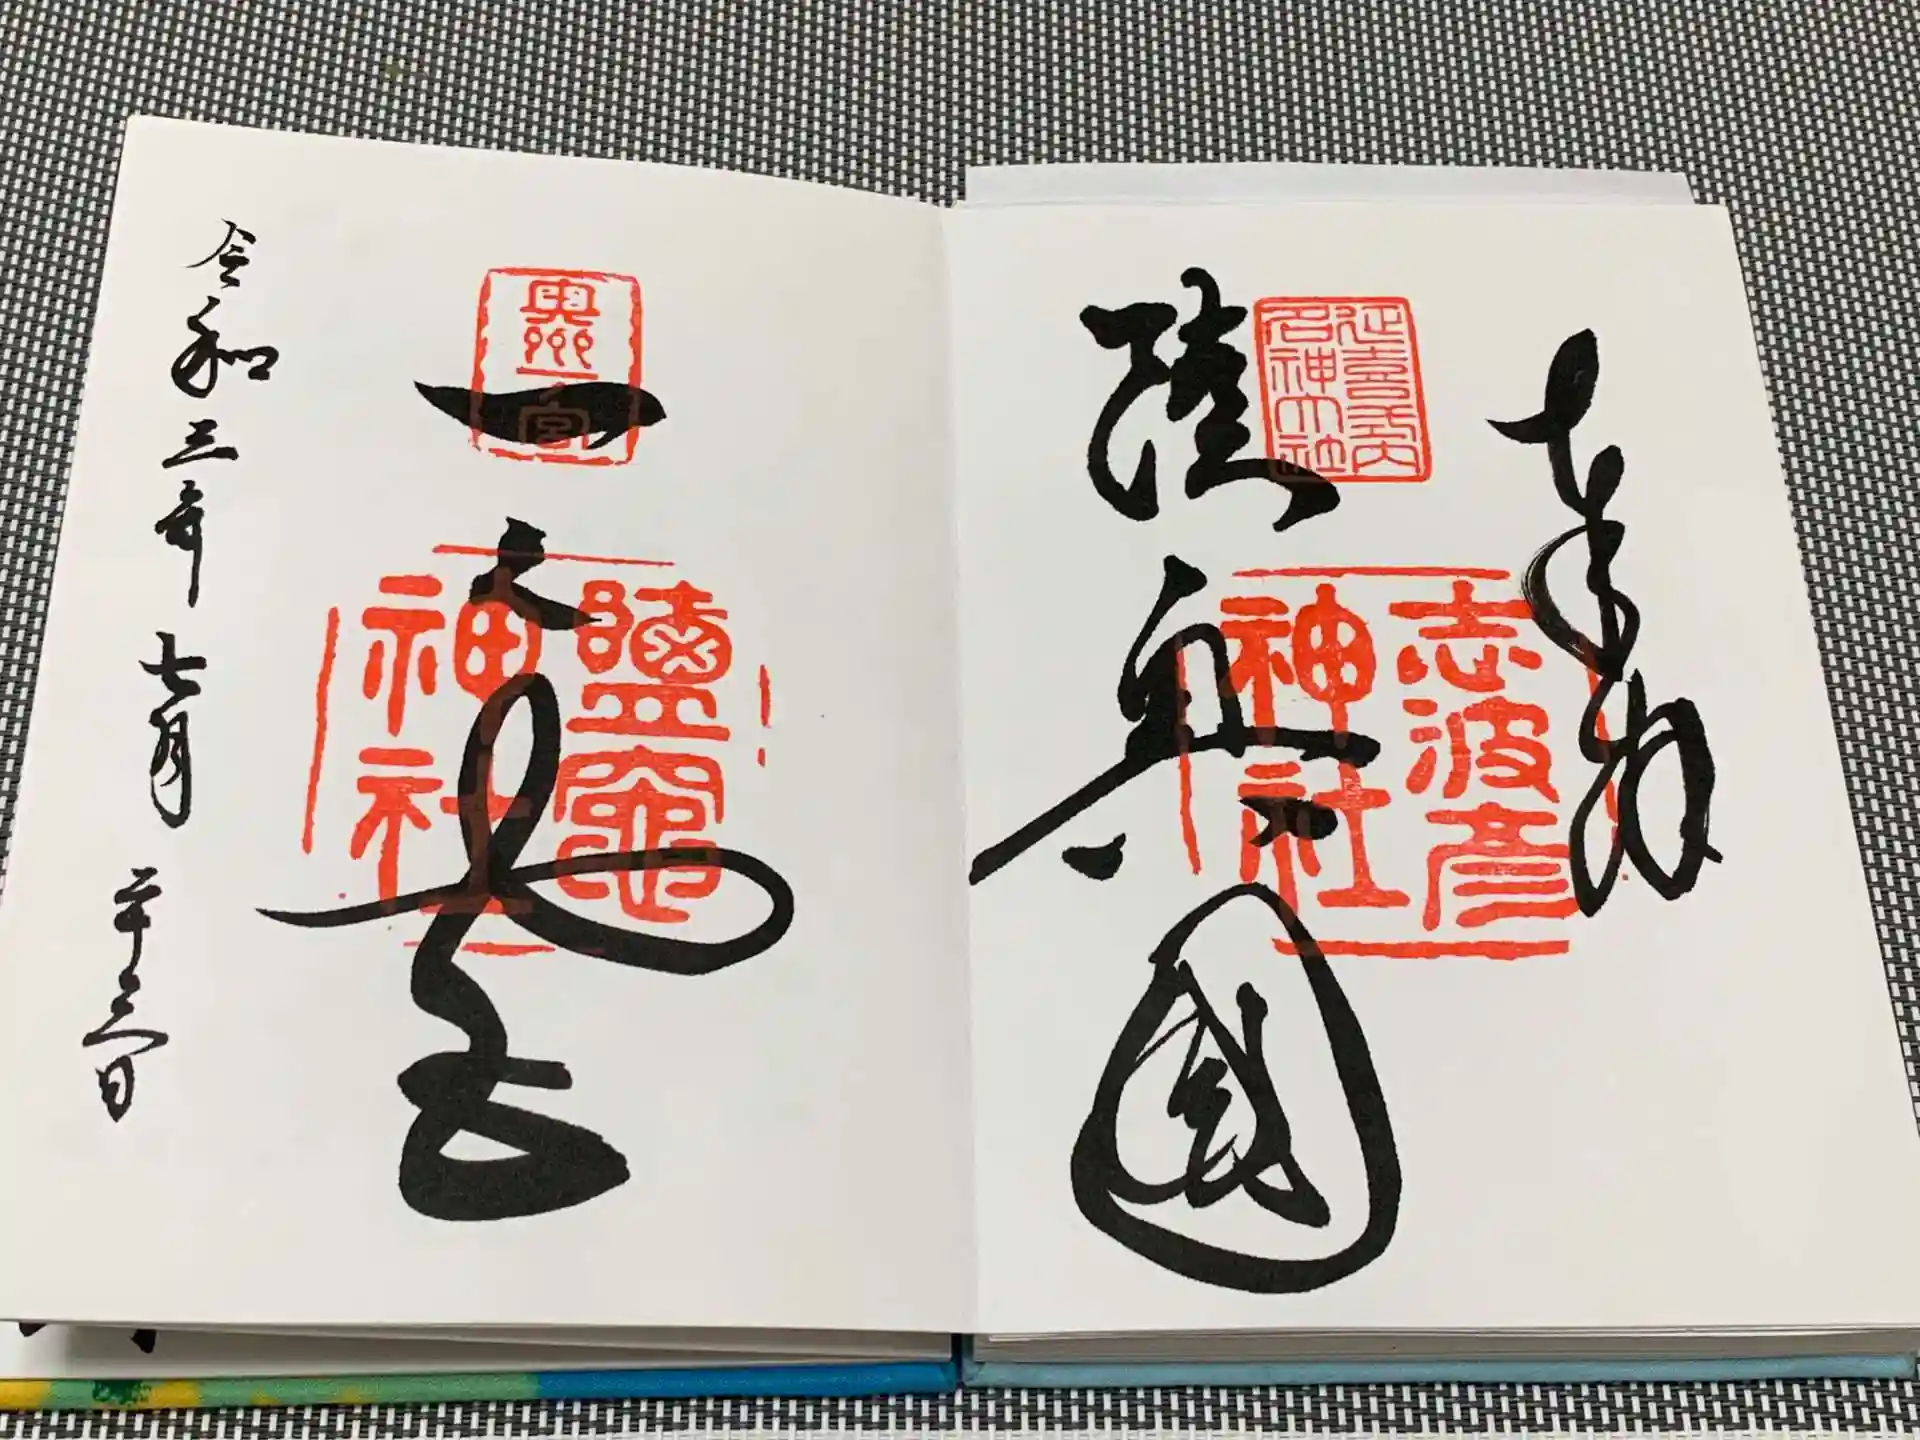 奉拝
延喜式内
名神大社
志波彦
神社
陸奥國
奥州一宮
鹽竈
神社
一之宮
令和三年七月二十三日